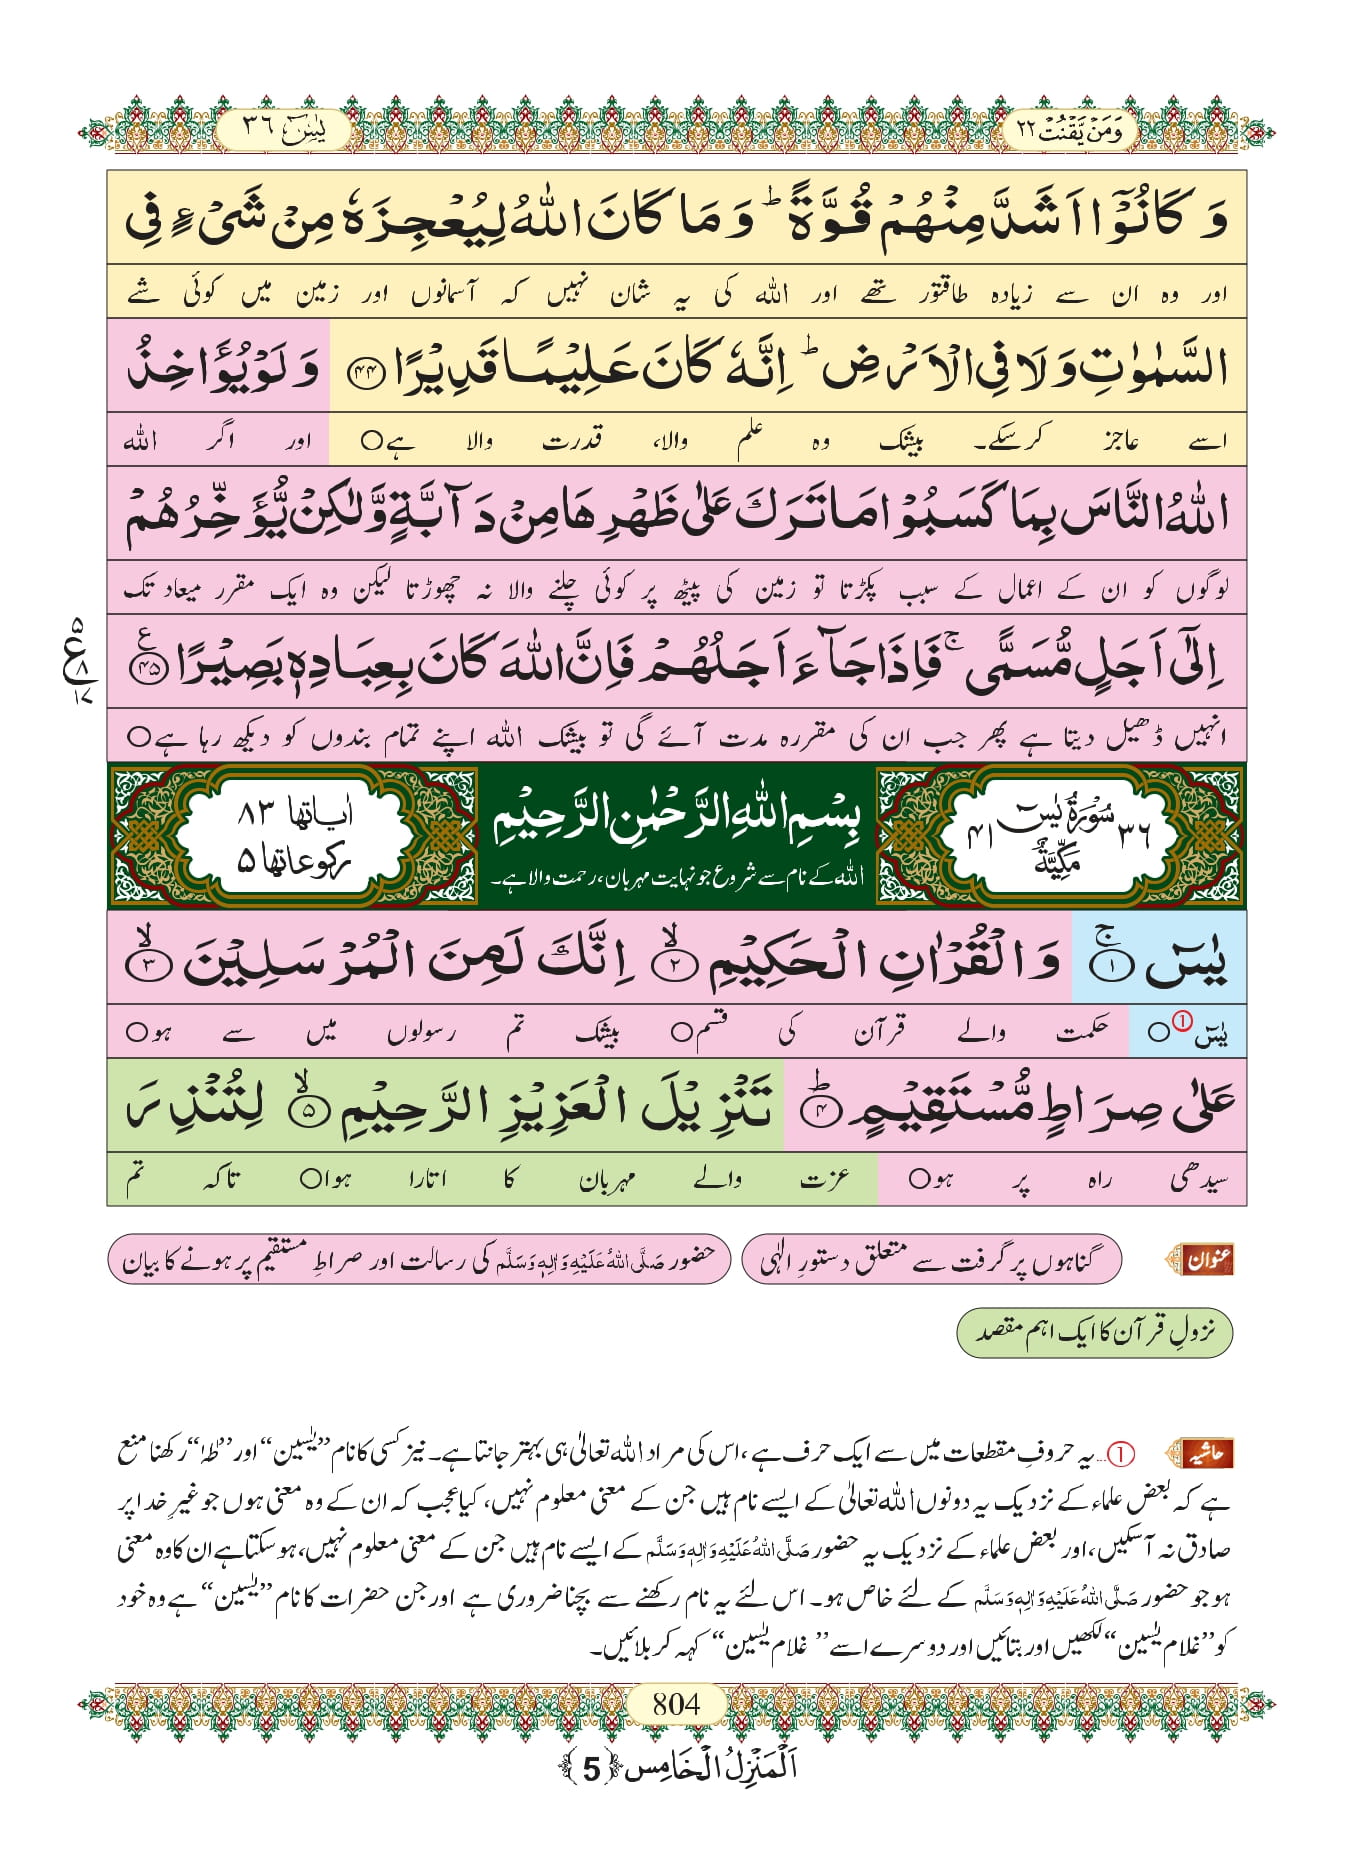 وَمَنْ يَّقْنُتْ ٢٢
يٰسٓ ٣٦
وَ كَانُوْۤا اَشَدَّ مِنْهُمْ قُوَّةًؕ وَ مَا كَانَ اللّٰهُ لِیُعْجِزَهٗ مِنْ شَیْءٍ فِی
اور وہ ان سے زیادہ طاقتور تھے اور اللہ کی یہ شان نہیں کہ آسمانوں اور زمین میں کوئی شے
السَّمٰوٰتِ وَ لَا فِی الْاَرْضِؕ اِنَّهٗ كَانَ عَلِیْمًا قَدِیْرًا ﴿۴۴﴾ وَ لَوْ یُؤَاخِذُ
اسے عاجز کرسکے۔ بیشک وہ علم والا، قدرت والا ہے○ اور اگر اللہ
اللّٰهُ النَّاسَ بِمَا كَسَبُوْا مَا تَرَكَ عَلٰى ظَهْرِهَا مِنْ دَآبَّةٍ وَّ لٰكِنْ یُّؤَخِّرُهُمْ
لوگوں کو ان کے اعمال کے سبب پکڑتا تو زمین کی پیٹھ پر کوئی چلنے والا نہ چھوڑتا لیکن وہ ایک مقرر میعاد تک
اِلٰۤى اَجَلٍ مُّسَمًّىۚ فَاِذَا جَآءَ اَجَلُهُمْ فَاِنَّ اللّٰهَ كَانَ بِعِبَادِهٖ بَصِیْرًا ﴿۴۵﴾ ع
۵ ع ۸ ۱۷
انہیں ڈھیل دیتا ہے پھر جب ان کی مقررہ مدت آئے گی تو بیشک اللہ اپنے تمام بندوں کو دیکھ رہا ہے○
٣٦ سُوْرَةُ يٰسٓ مَكِّيَّةٌ ٤١
بِسْمِ اللّٰهِ الرَّحْمٰنِ الرَّحِیْمِ
اللہ کے نام سے شروع جو نہایت مہربان، رحمت والا ہے۔
اٰیاتھا ۸۳
رکوعاتھا ۵
یٰسٓ ۚ﴿۱﴾ وَ الْقُرْاٰنِ الْحَكِیْمِ ۙ﴿۲﴾ اِنَّكَ لَمِنَ الْمُرْسَلِیْنَ ۙ﴿۳﴾
یٰسٓ①○ حکمت والے قرآن کی قسم○ بیشک تم رسولوں میں سے ہو○
عَلٰى صِرَاطٍ مُّسْتَقِیْمٍ ؕ﴿۴﴾ تَنْزِیْلَ الْعَزِیْزِ الرَّحِیْمِ ۙ﴿۵﴾ لِتُنْذِرَ
سیدھی راہ پر ہو○ عزت والے مہربان کا اتارا ہوا○ تاکہ تم
عنوان گناہوں پر گرفت سے متعلق دستورِ الٰہی حضور صَلَّی اللہُ عَلَیْہِ وَاٰلِہٖ وَسَلَّم کی رسالت اور صراطِ مستقیم پر ہونے کا بیان
نزولِ قرآن کا ایک اہم مقصد
حاشیہ ①... یہ حروفِ مقطعات میں سے ایک حرف ہے، اس کی مراد اللہ تعالیٰ ہی بہتر جانتا ہے۔ نیز کسی کا نام ”یٰسین“ اور ”طٰہٰ“ رکھنا منع
ہے کہ بعض علماء کے نزدیک یہ دونوں اللہ تعالیٰ کے ایسے نام ہیں جن کے معنی معلوم نہیں، کیا عجب کہ ان کے وہ معنی ہوں جو غیرِ خدا پر
صادق نہ آسکیں، اور بعض علماء کے نزدیک یہ حضور صَلَّی اللہُ عَلَیْہِ وَاٰلِہٖ وَسَلَّم کے ایسے نام ہیں جن کے معنی معلوم نہیں، ہوسکتا ہے ان کا وہ معنی
ہو جو حضور صَلَّی اللہُ عَلَیْہِ وَاٰلِہٖ وَسَلَّم کے لئے خاص ہو۔ اس لئے یہ نام رکھنے سے بچنا ضروری ہے اور جن حضرات کا نام ”یٰسین“ ہے وہ خود
کو ”غلام یٰسین“ لکھیں اور بتائیں اور دوسرے اسے ”غلام یٰسین“ کہہ کر بلائیں۔
804
اَلْمَنْزِلُ الْخَامِس ﴿5﴾